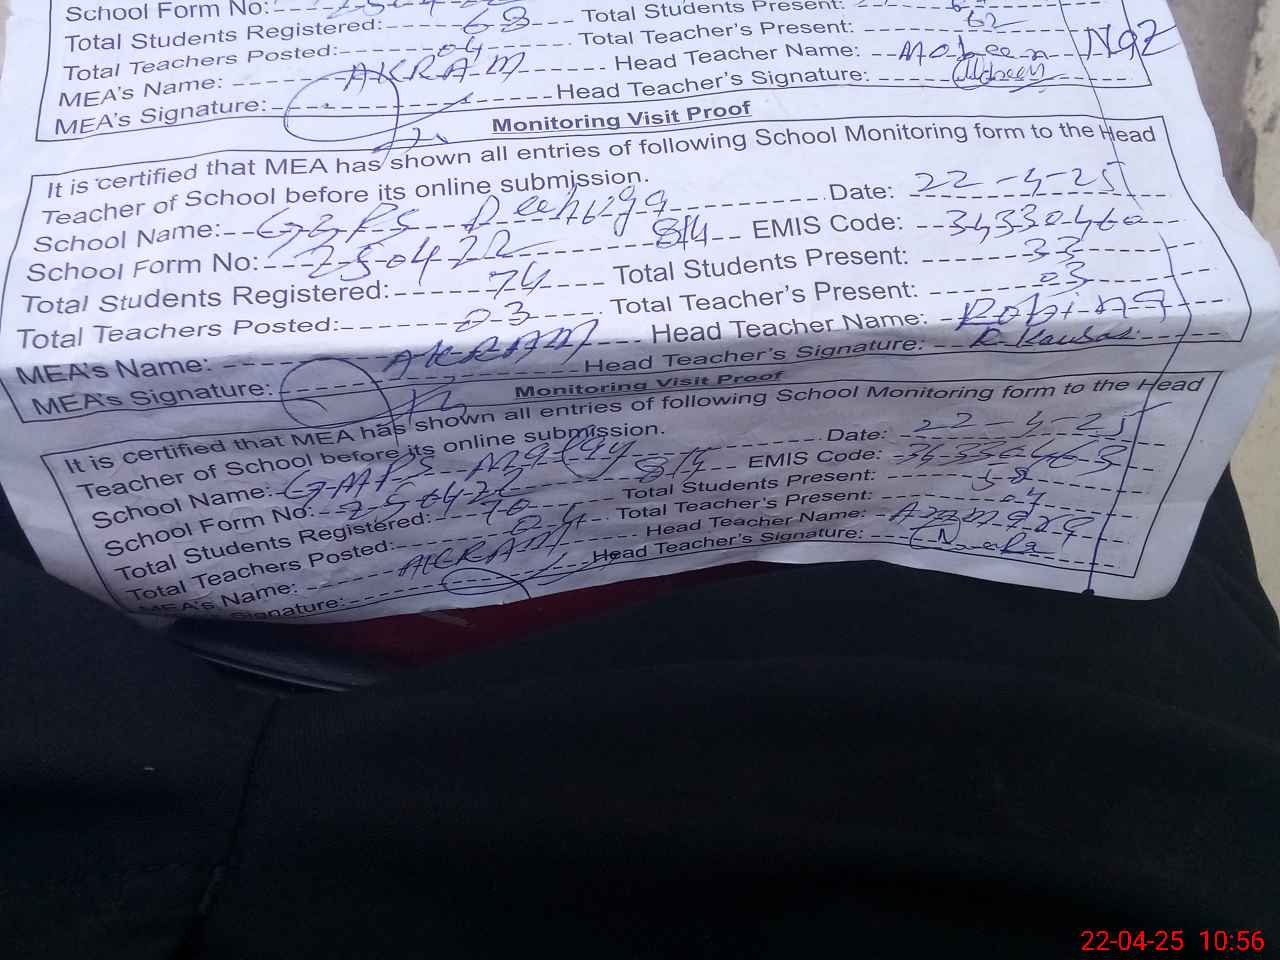 School Form No:
Total Students Registered: 68 Total Students Present: 62
Total Teachers Posted: 04 Total Teacher's Present:
MEA's Name: AKRAM Head Teacher Name: Mobeen Naz
MEA's Signature: Head Teacher's Signature: Mobeen
Monitoring Visit Proof
It is certified that MEA has shown all entries of following School Monitoring form to the Head
Teacher of School before its online submission. Date: 22-4-25
School Name: GGPS 8/4 EMIS Code: 34330460
School Form No: 25-04-22 Total Students Present: 33
Total Students Registered: 74 Total Teacher's Present: 03
Total Teachers Posted: 03 Head Teacher Name: Robina
MEA's Name: AKRAM Head Teacher's Signature: R. Kausar
MEA's Signature:
Monitoring Visit Proof
It is certified that MEA has shown all entries of following School Monitoring form to the Head
Teacher of School before its online submission. Date: 22-4-25
School Name: GMPS EMIS Code: 34330463
School Form No: 25-04-22 Total Students Present: 58
Total Students Registered: 70 Total Teacher's Present: 04
Total Teachers Posted: 04 Head Teacher Name:
MEA's Name: AKRAM Head Teacher's Signature:
MEA's Signature:
22-04-25 10:56